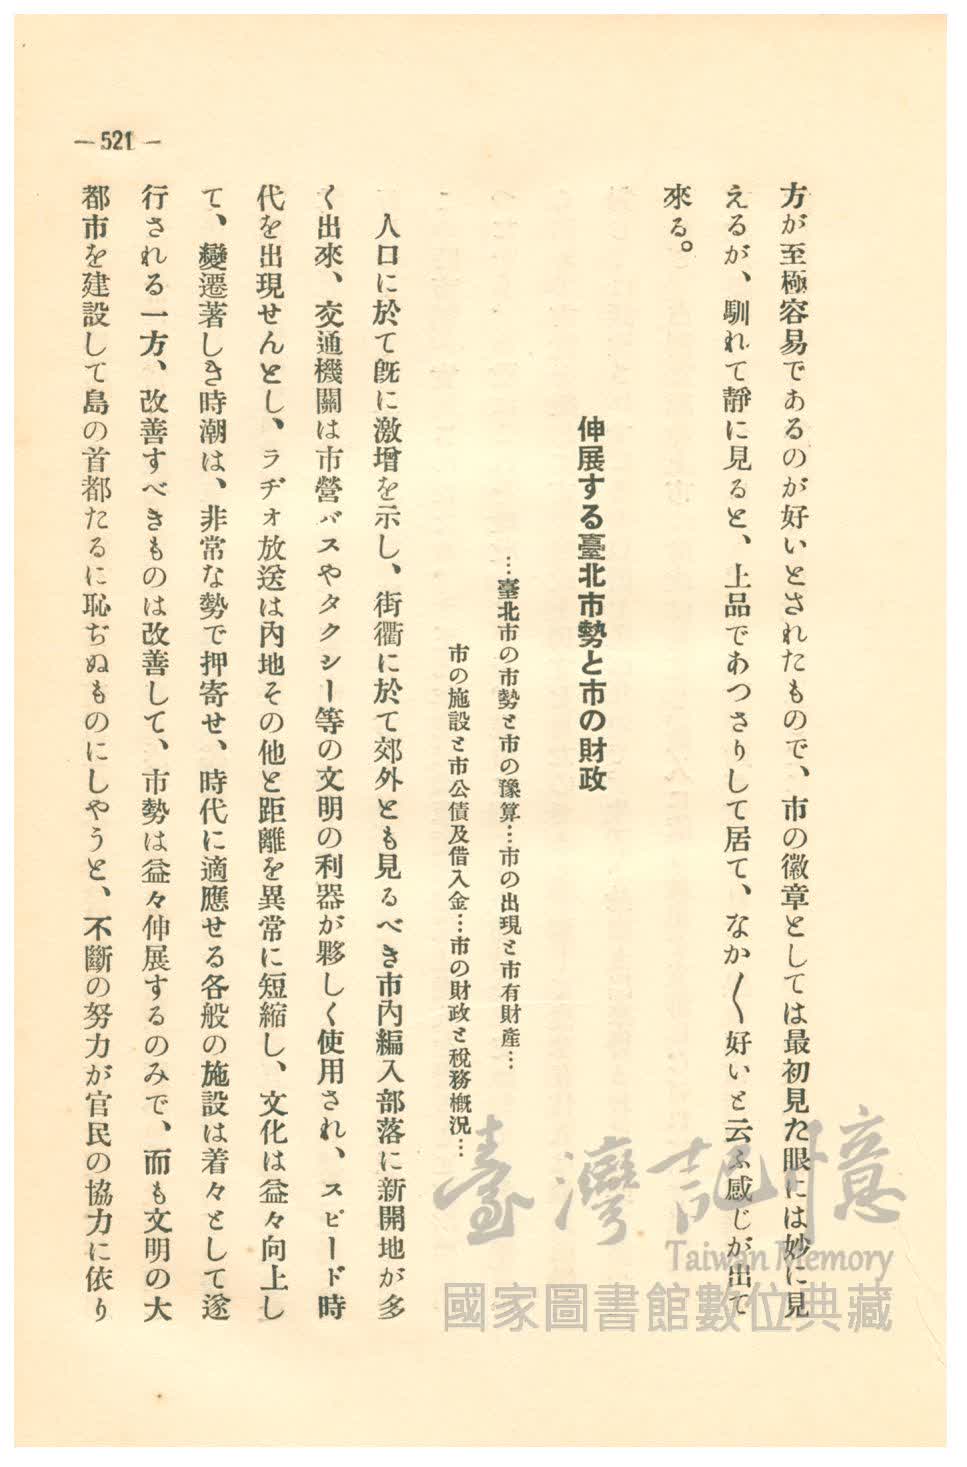 — 521 —
方が至極容易であるのが好いとされたもので、市の徽章としては最初見た眼には妙に見
えるが、馴れて靜に見ると、上品であつさりして居て、なか〱好いと云ふ感じが出て
來る。
伸展する臺北市勢と市の財政
…臺北市の市勢と市の豫算…市の出現と市有財產…
市の施設と市公債及借入金…市の財政と稅務槪況…
人口に於て旣に激增を示し、街衢に於て郊外とも見るべき市內編入部落に新開地が多
く出來、交通機關は市營バスやタクシー等の文明の利器が夥しく使用され、スピード時
代を出現せんとし、ラヂオ放送は內地その他と距離を異常に短縮し、文化は益々向上し
て、變遷著しき時潮は、非常な勢で押寄せ、時代に適應せる各般の施設は着々として遂
行される一方、改善すべきものは改善して、市勢は益々伸展するのみで、而も文明の大
都市を建設して島の首都たるに恥ぢぬものにしやうと、不斷の努力が官民の協力に依り
臺灣記憶
Taiwan Memory
國家圖書館數位典藏